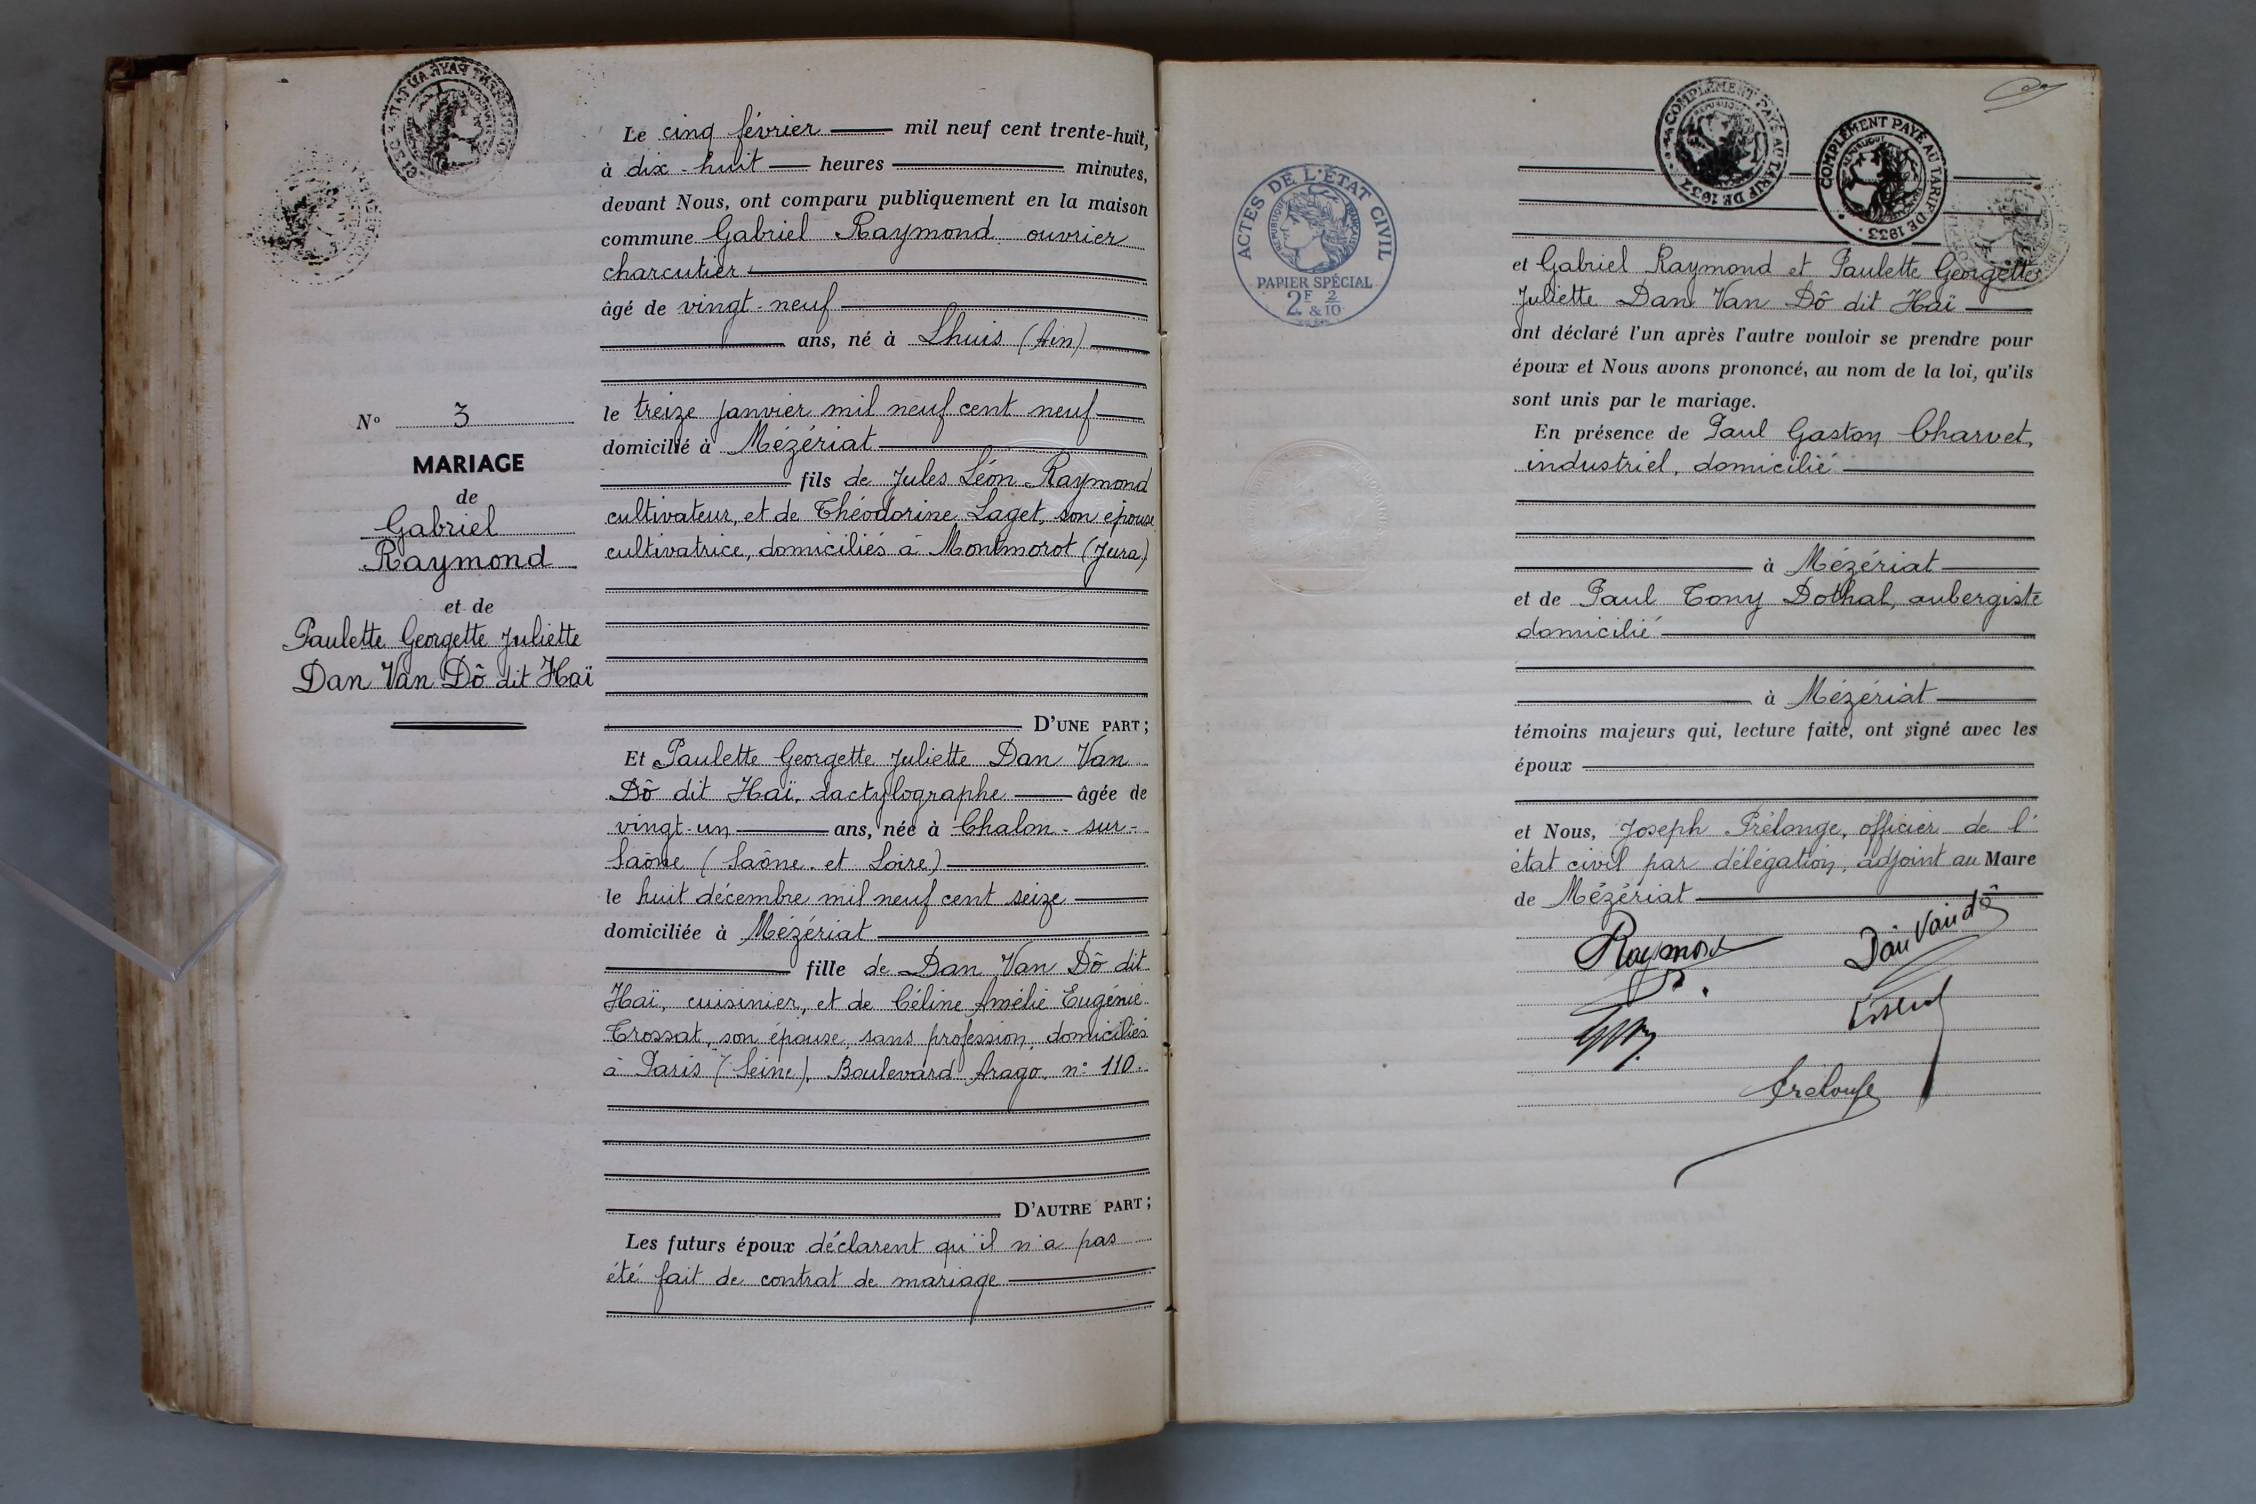 N° 3
MARIAGE
de
Gabriel
Raymond
et de
Paulette Georgette Juliette
Dan Van Dô dit Haï
Le cinq février mil neuf cent trente-huit,
à dix-huit heures minutes,
devant Nous, ont comparu publiquement en la maison
commune Gabriel Raymond, ouvrier
charcutier
âgé de vingt-neuf
ans, né à Lhuis (Ain)
le treize janvier mil neuf cent neuf
domicilié à Mézériat
fils de Jules Léon Raymond
cultivateur, et de Théodorine Laget, son épouse
cultivatrice, domiciliés à Montmorot (Jura)
D'UNE PART;
Et Paulette Georgette Juliette Dan Van
Dô dit Haï, dactylographe âgée de
vingt-un ans, née à Chalon-sur-
Saône (Saône-et-Loire)
le huit décembre mil neuf cent seize
domiciliée à Mézériat
fille de Dan Van Dô dit
Haï, cuisinier, et de Céline Amélie Eugénie
Trossat, son épouse, sans profession, domiciliés
à Paris (Seine), Boulevard Arago, n° 110.
D'AUTRE PART;
Les futurs époux déclarent qu'il n'a pas
été fait de contrat de mariage
ACTES DE L'ÉTAT CIVIL
RÉPUBLIQUE FRANÇAISE
PAPIER SPÉCIAL
2F 2/10
&
COMPLÉMENT PAYÉ AU TARIF DE 1937
COMPLÉMENT PAYÉ AU TARIF DE 1933
et Gabriel Raymond et Paulette Georgette
Juliette Dan Van Dô dit Haï
ont déclaré l'un après l'autre vouloir se prendre pour
époux et Nous avons prononcé, au nom de la loi, qu'ils
sont unis par le mariage.
En présence de Paul Gaston Charvet,
industriel, domicilié
à Mézériat
et de Paul Tony Dothal, aubergiste
domicilié
à Mézériat
témoins majeurs qui, lecture faite, ont signé avec les
époux
et Nous, Joseph Prélonge, officier de l'
état civil par délégation, adjoint au Maire
de Mézériat
Raymond
Dan Van dô